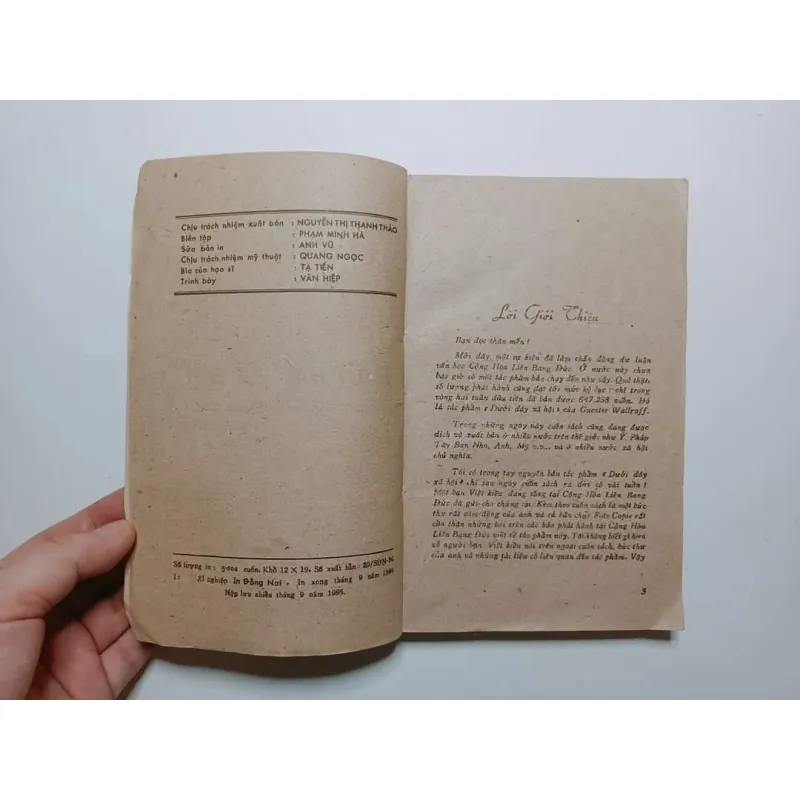 Chịu trách nhiệm xuất bản : NGUYỄN THỊ THANH THẢO
Biên tập : PHẠM MINH HÀ
Sửa bản in : ANH VŨ
Chịu trách nhiệm mỹ thuật : QUANG NGỌC
Bìa của họa sĩ : TẠ TIẾN
Trình bày : VĂN HIỆP
Số lượng in : cuốn. Khổ 12 X 19. Số xuất bản:
Xí nghiệp in Đồng Nai. In xong tháng 9 năm
Nộp lưu chiểu tháng 9 năm 1986.
Lời Giới Thiệu
Bạn đọc thân mến !
Mới đây, một sự kiện đã làm chấn động dư luận
văn học Cộng Hòa Liên Bang Đức. Ở nước này chưa
bao giờ có một tác phẩm bán chạy đến như vậy. Quả thật,
số lượng phát hành cũng đạt tới mức kỷ lục : chỉ trong
vòng hai tuần đầu tiên đã bán được 647.258 cuốn. Đó
là tác phẩm « Dưới đáy xã hội » của Guenter Wallraff.
Trong những ngày này cuốn sách cũng đang được
dịch và xuất bản ở nhiều nước trên thế giới như Ý, Pháp
Tây Ban Nha, Anh, Mỹ v.v... và ở nhiều nước xã hội
chủ nghĩa.
Tôi có trong tay nguyên bản tác phẩm « Dưới đáy
xã hội » chỉ sau ngày cuốn sách ra đời có vài tuần !
Một bạn Việt kiều đang sống tại Cộng Hòa Liên Bang
Đức đã gửi cho chúng tôi. Kèm theo cuốn sách là một bức
thư rất cảm động của anh và cả bản chụp Foto Copie rất
cẩn thận những bài trên các báo phát hành tại Cộng Hòa
Liên Bang Đức viết về tác phẩm này. Tôi không biết gì hơn
về người bạn Việt kiều nói trên ngoài cuốn sách, bức thư
của anh và những tài liệu có liên quan đến tác phẩm. Vậy
3